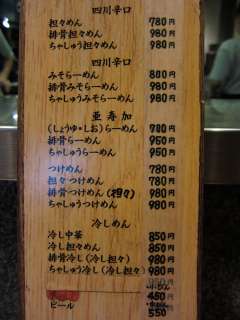 四川辛口
担々めん 780円
排骨担々めん 980円
ちゃしゅう担々めん 980円
四川辛口
みそらーめん 800円
排骨みそらーめん 980円
ちゃしゅうみそらーめん 980円
亜寿加
(しょうゆ・しお)らーめん 700円
排骨らーめん 950円
ちゃしゅうらーめん 950円
つけめん 780円
担々つけめん 780円
排骨つけめん(担々) 980円
ちゃしゅうつけめん 980円
冷しめん
冷し中華 850円
冷し担々めん 850円
排骨冷し(冷し担々) 980円
ちゃしゅう冷し(冷し担々) 980円
450円
ビール
550